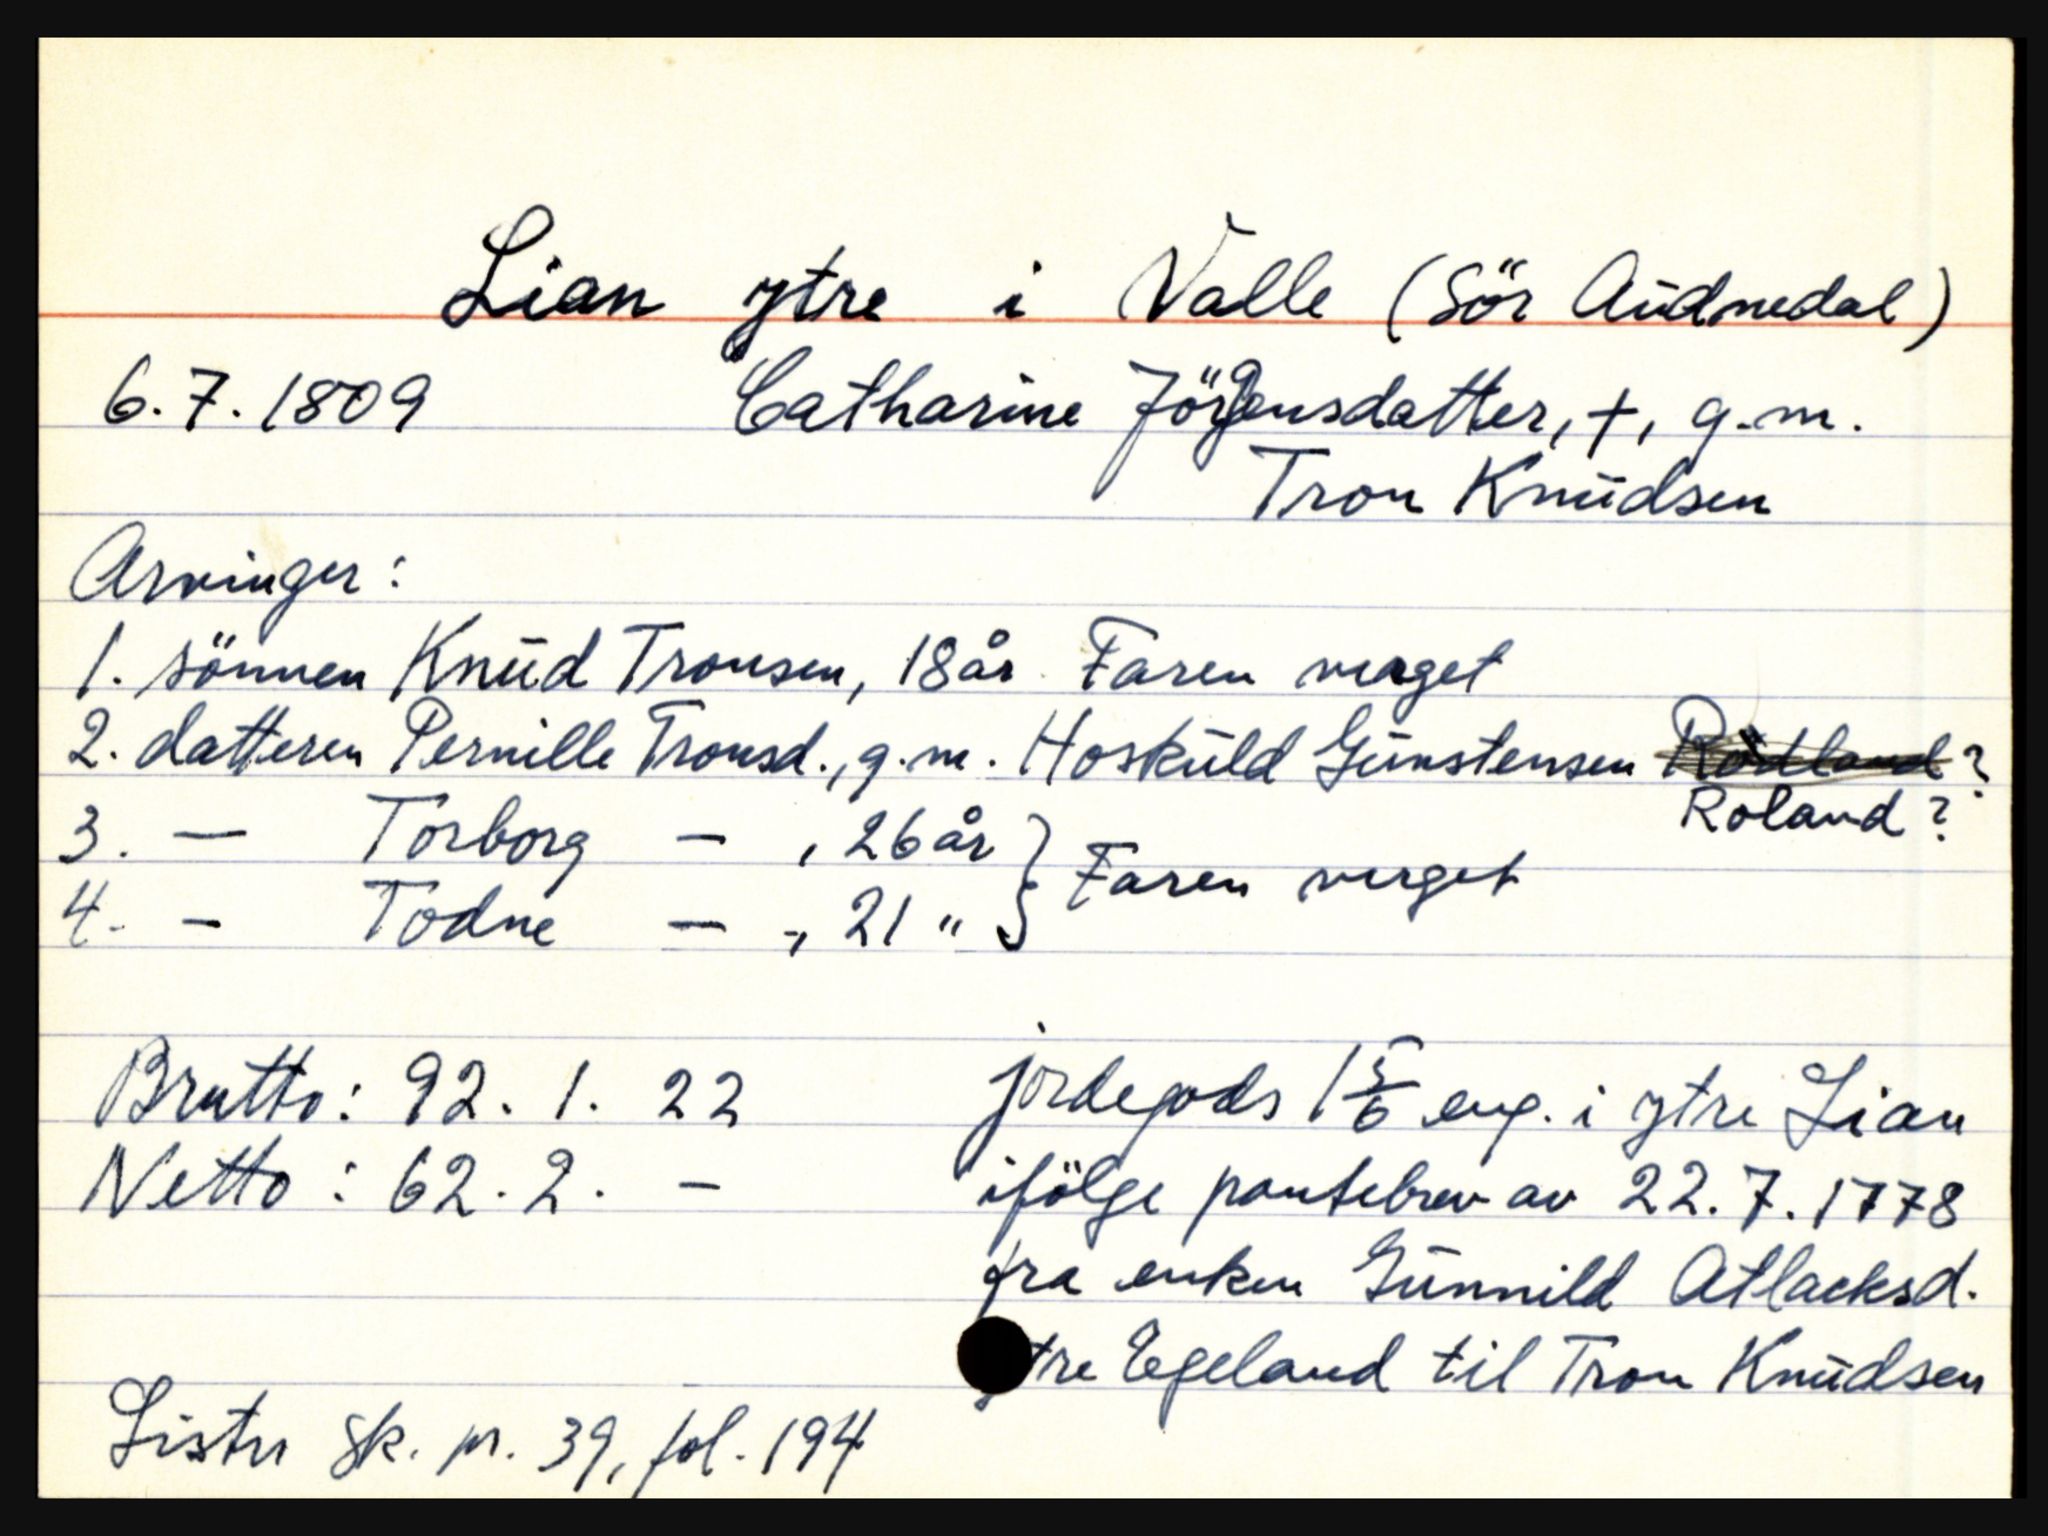 Lian ytre i Valle (Sör Audnedal)
6.7.1809 Catharine Jörgensdatter, +, g.m.
Tron Knudsen
Arvinger:
1. sönnen Knud Tronsen, 18 år. Faren verget
2. datteren Pernille Tronsd., g.m. Hoskuld Gunstensen Rödland?
Roland?
3. — Torborg — , 26 år } Faren verget
4. — Todne — , 21 " }
Brutto: 92. 1. 22
Netto: 62. 2. —
jordegods 1 5/6 eng. i ytre Lian
ifölge pantebrev av 22.7.1778
fra enken Gunnild Atlacksd.
ytre Egeland til Tron Knudsen
Lister sk. pr. 39, fol. 194